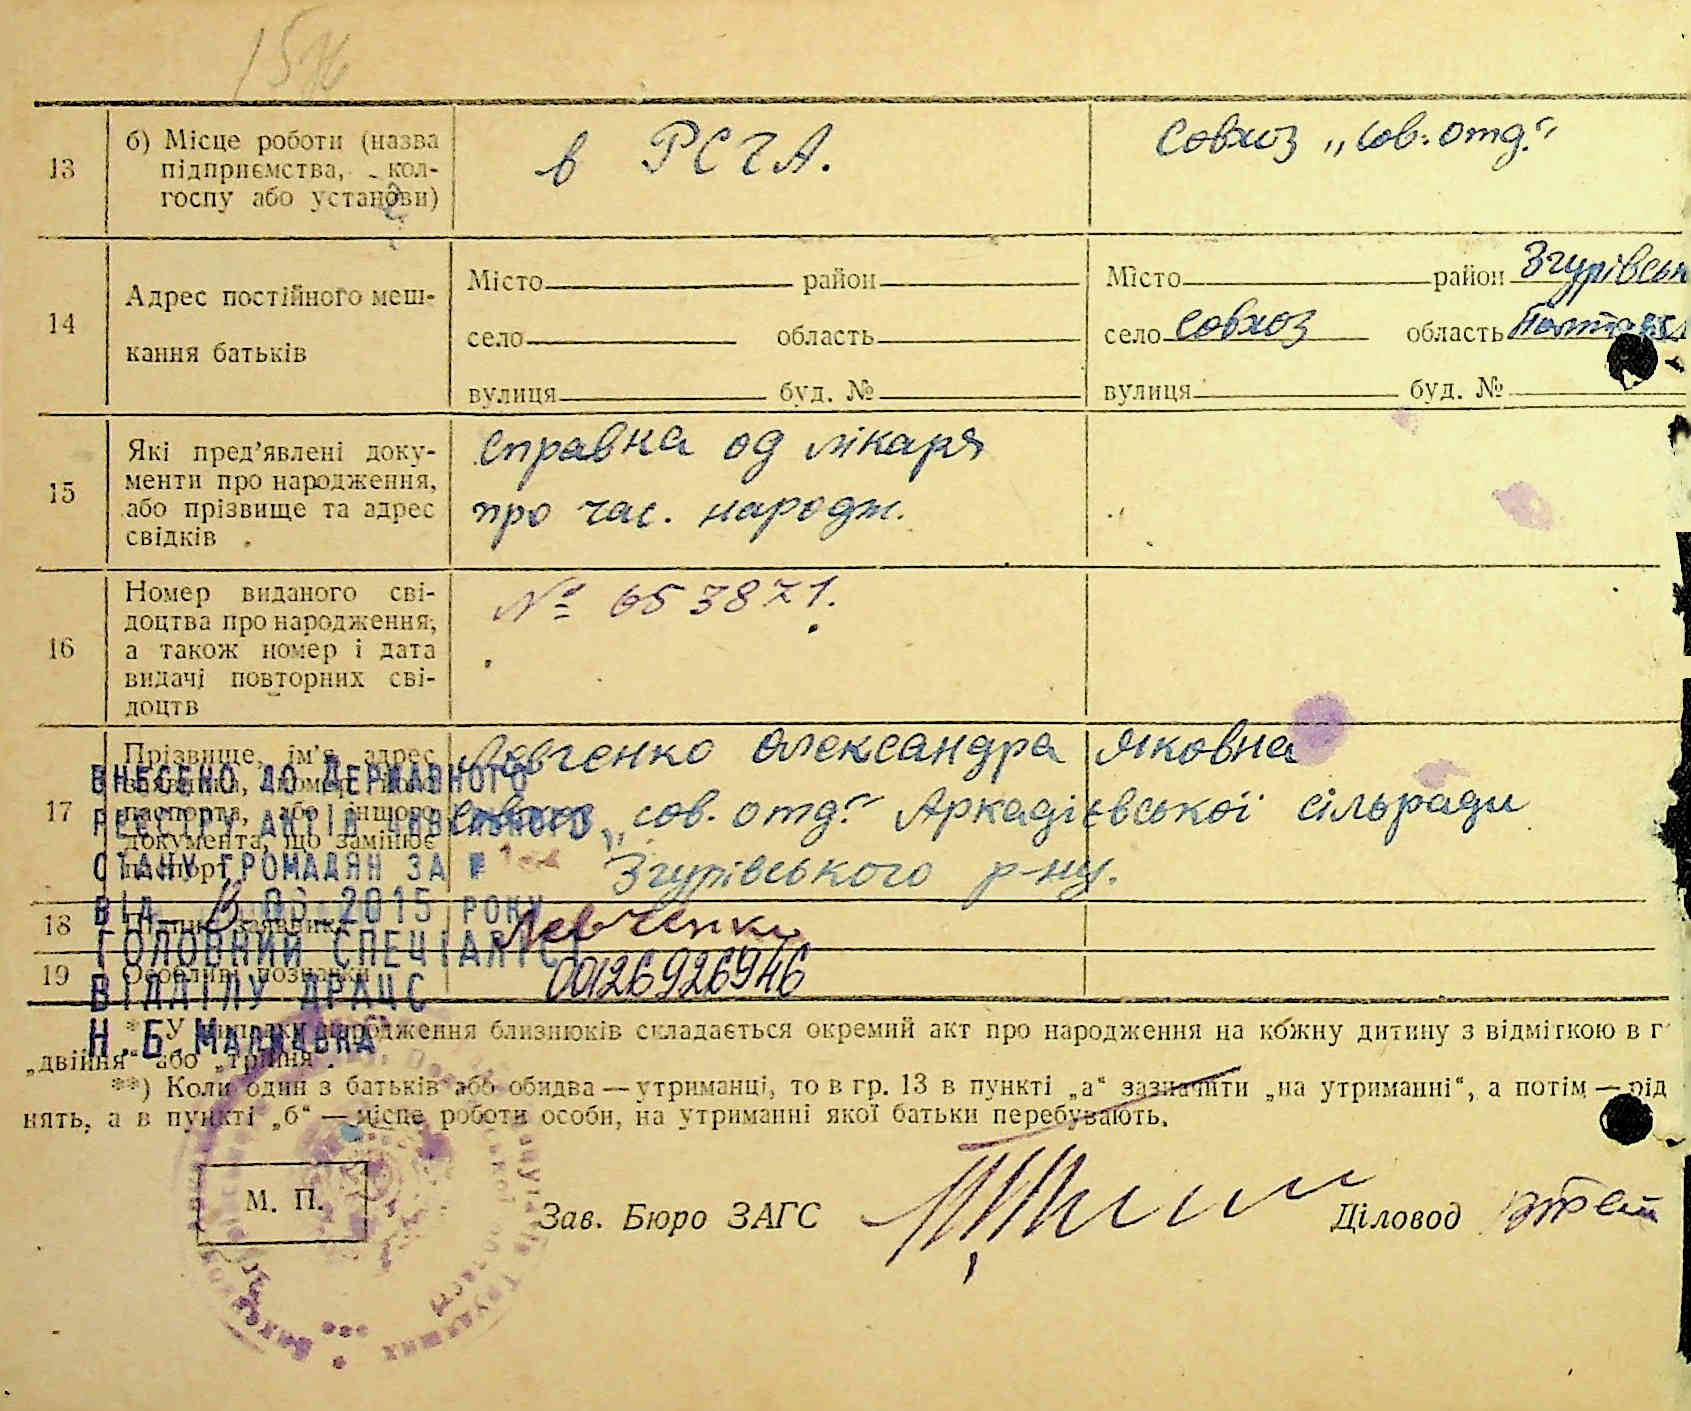 13
б) Місце роботи (назва
підприємства, кол-
госпу або установи)
в РСЧА.
Совхоз „Сов. отд.“
14
Адрес постійного меш-
кання батьків
Місто район
село область
вулиця буд. №
Місто район Згурівськ
село Совхоз область Полтавськ
вулиця буд. №
15
Які пред'явлені доку-
менти про народження,
або прізвище та адрес
свідків
Справка од лікаря
про час. народж.
16
Номер виданого сві-
доцтва про народження,
а також номер і дата
видачі повторних сві-
доцтв
№ 653871.
17
Прізвище, ім'я, адрес
паспорта, або іншого
документа, що замінює
паспорт
Левченко Олександра Яковна
„сов. отд.“ Аркадієвської сільради
Згурівського р-ну.
Внесено до Державного
реєстру актів цивільного
стану громадян за №
від 06 2015 року
Головний спеціаліст
відділу ДРАЦС
Н.Б.
18
Підпис заявника
Левченко
19
Особливі познаки
00126926946
*) У випадку народження близнюків складається окремий акт про народження на кожну дитину з відміткою в г
„двійня“ або „трійня“.
**) Коли один з батьків або обидва — утриманці, то в гр. 13 в пункті „а“ зазначити „на утриманні“, а потім — рід
нять, а в пункті „б“ — місце роботи особи, на утриманні якої батьки перебувають.
М. П.
Зав. Бюро ЗАГС
Діловод